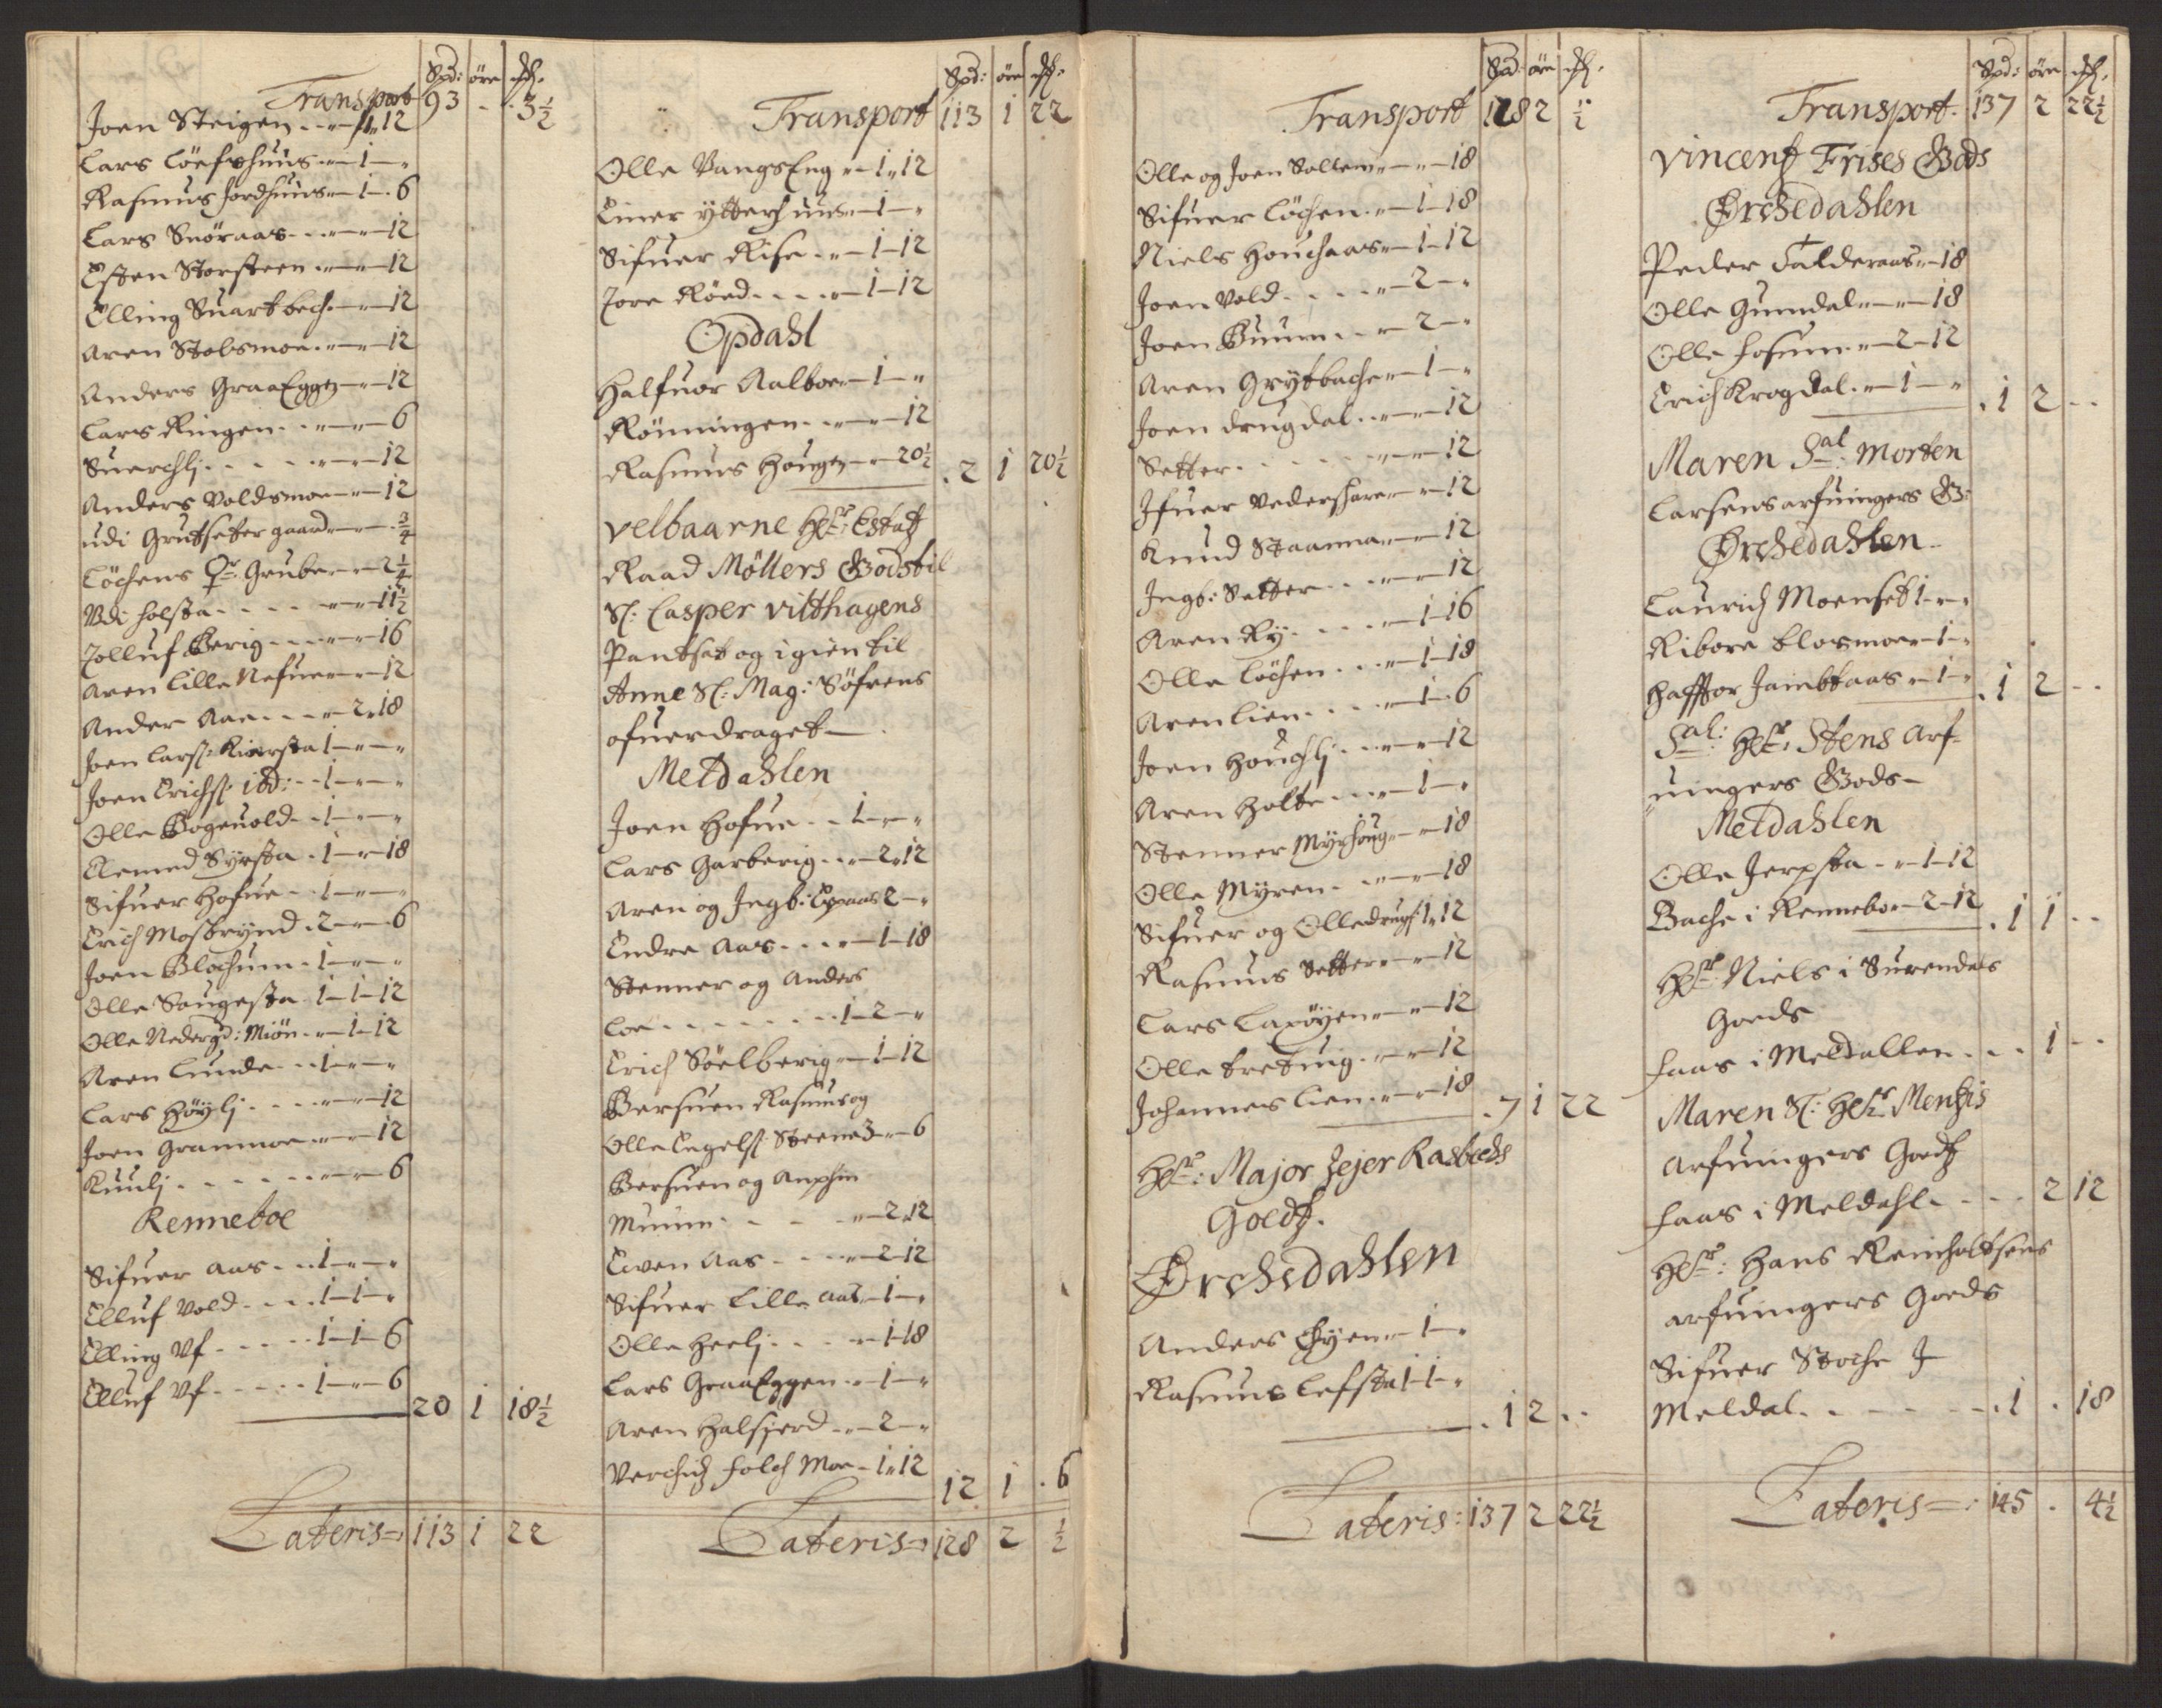 Spd: øre ₰.
Transport 93 - . 3½
Joen Steigen - - „ 1 „ 12
Lars Löefshuus „ 1 - „
Rasmus Jordhuus „ 1 - 6
Lars Snöraas - - „ - „ - 12
Esten Storsteen „ - „ - 12
Elling Suartbech - „ - 12
Aren Stobsmoe - „ - „ - 12
Anders GraaEggen - „ - 12
Lars Ringen - - „ - „ - 6
Suerchlj - - - „ - „ - 12
Anders Voldsmoe „ - „ - 12
udi Grutseter gaard „ - „ - ¾
Löchens Grube - „ - 2¼
Udi holsta - - - „ - „ - 11½
Tolluf Berig - - „ - „ - 16
Aren Lille Nefue „ - „ - 12
Ander Aae - - „ - 2 „ 18
Joen Lars: Kiersta 1 - „ - „
Joen Erichs: ibd: - 1 - „ - „
Olle Bogeuold - - 1 - „ - „
Clemed Syrsta - 1 - „ - 18
Sifuer Hofue - - 1 - „ - „
Erich Mosbrynd . 2 - „ - 6
Joen Blochum - 1 - „ - „
Olle Sougesta 1 - 1 - 12
Olle Nedergd: Miön - „ - 1 - 12
Aren Lunde - - 1 - „ - „
Lars Höylj - - - „ - „ - 12
Joen Grammoe „ - „ - 12
Kuulj - - - - „ - „ - 6
Renneboe
Sifuer Aas - - 1 - „ - „
Elluf Vold - - - 1 - 1 - „
Elling Vf - - - 1 - 1 - 6
Elluf Vf - - - 1 - „ - 6
20 1 18½
Lateris = 113 1 22
Spd: øre ₰.
Transport 113 1 22
Olle VangsEng „ - 1 „ 12
Einer ytterhuus „ - 1 - „
Sifuer Rise - „ - 1 - 12
Tore Röed - - - „ - 1 - 12
Opdahl
Halfuor Aalboe „ - 1 - „
Rönningen - - „ - „ - 12
Rasmus Hougen - „ - 20½ . 2 1 20½
Velbaarne Hr: Estatz
Raad Möllers Godstil
Sl: Casper Vitthagens
Pantsat og igien til
Anne Sl: Mag: Söfrens
ofuerdraget
Meldahlen
Joen Hofue - - 1 - „ - „
Lars Garberig - - „ - 2 „ 12
Aren og Ingb: 2 - „
Endre Aas - - - „ - 1 - 18
Stenner og Anders
Loe - - - - - 1 - 2 - „
Erich Söelberig „ - 1 - 12
Bersuen Rasmus og
Olle Engels: Steene 3 - „ - 6
Bersuen og Amphin
Muum - - - „ - 2 „ 12
Even Aas - - - „ - 2 - 12
Sifuer Lille Aas - 1 - „
Olle Heelj - - - „ - 1 - 18
Lars GraaEggen - „ - 1 - „
Aren Halsierd - „ - 2 - „
Verchich Folch Moe - 1 „ 12
12 1 . 6
Lateris = 128 2 ½
Spd: øre ₰.
Transport 128 2 ½
Olle og Joen Solem „ - „ - 18
Sifuer Löchen - „ - 1 - 18
Niels Houchaas „ - 1 - 12
Joen Vold - - - „ - 2 - „
Joen Buum - - „ - 2 - „
Aren Grytbache „ - 1 - „
Joen Drugdal - „ - „ - 12
Setter - - - - „ - „ - 12
Ifuer Vedershare „ - „ - 12
Knud Staanna „ - „ - 12
Ingb: Setter - - „ - „ - 12
Aren Ry - - - „ - 1 - 16
Olle Löchen - - „ - 1 - 18
Aren Lien - - - „ - 1 - 6
Joen Houchlj - - „ - „ - 12
Aren Holte - - „ - 1 - „
Stenner Myrhoug „ - „ - 18
Olle Myren - - „ - „ - 18
Sifuer og Olle drugs: 1 „ 12
Rasmus Setter „ - „ - 12
Lars Laxöyen „ - „ - 12
Olle tretuig - „ - „ - 12
Johannes Lien „ - „ - 18 . 7 1 22
Hr: Major Zejer Rasbechs
Goedtz.
Ørchedahlen
Anders Eyen „ - 1 - „
Rasmus Lefsta 1 - 1 - „
. 1 2 . .
Lateris: 137 2 22½
Spd: øre ₰.
Transport. 137 2 22½
Vincentz Frises Gods
Ørchedahlen
Peder Falderaas „ - 18
Olle Gumdal „ - „ - 18
Olle Fosum „ - 2 - 12
Erich Krogdal . „ - 1 - „ . 1 2 - -
Maren Sal: Morten
Larsens arfuingers G:
Ørchedahlen
Laurich Moenset 1 - „ - „
Ribore Closmoe „ - 1 - „
Hafftor Jambtaas „ - 1 - „ . 1 2 - -
Sal: Hr: Stens Arf-
uingers Gods -
Meldahlen
Olle Jerpsta - „ - 1 - 12
Bache i Renneboe - 2 - 12 . 1 1 - -
Hr: Niels i Surendals
Goeds
Faas i Meldallen - - . 1 - -
Maren Sl: Hr: Mentzis
Arfuingers Goedtz
Faas i Meldahl - - - . 2 12
Hr: Hans Reinholtsens
arfuingers Goeds
Sifuer Stoche I
Meldal - - - - . 1 . 18
Lateris = : 145 . 4½